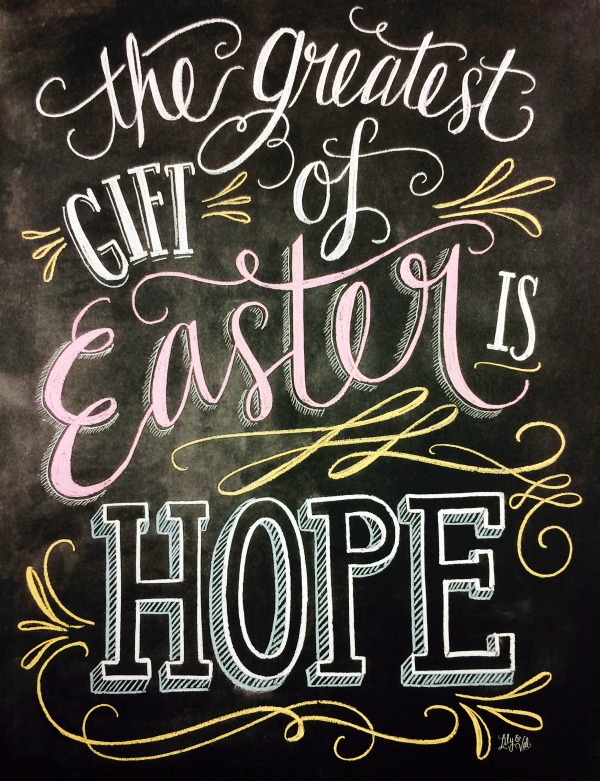 the greatest
GIFT of
Easter IS
HOPE
Lily & Val